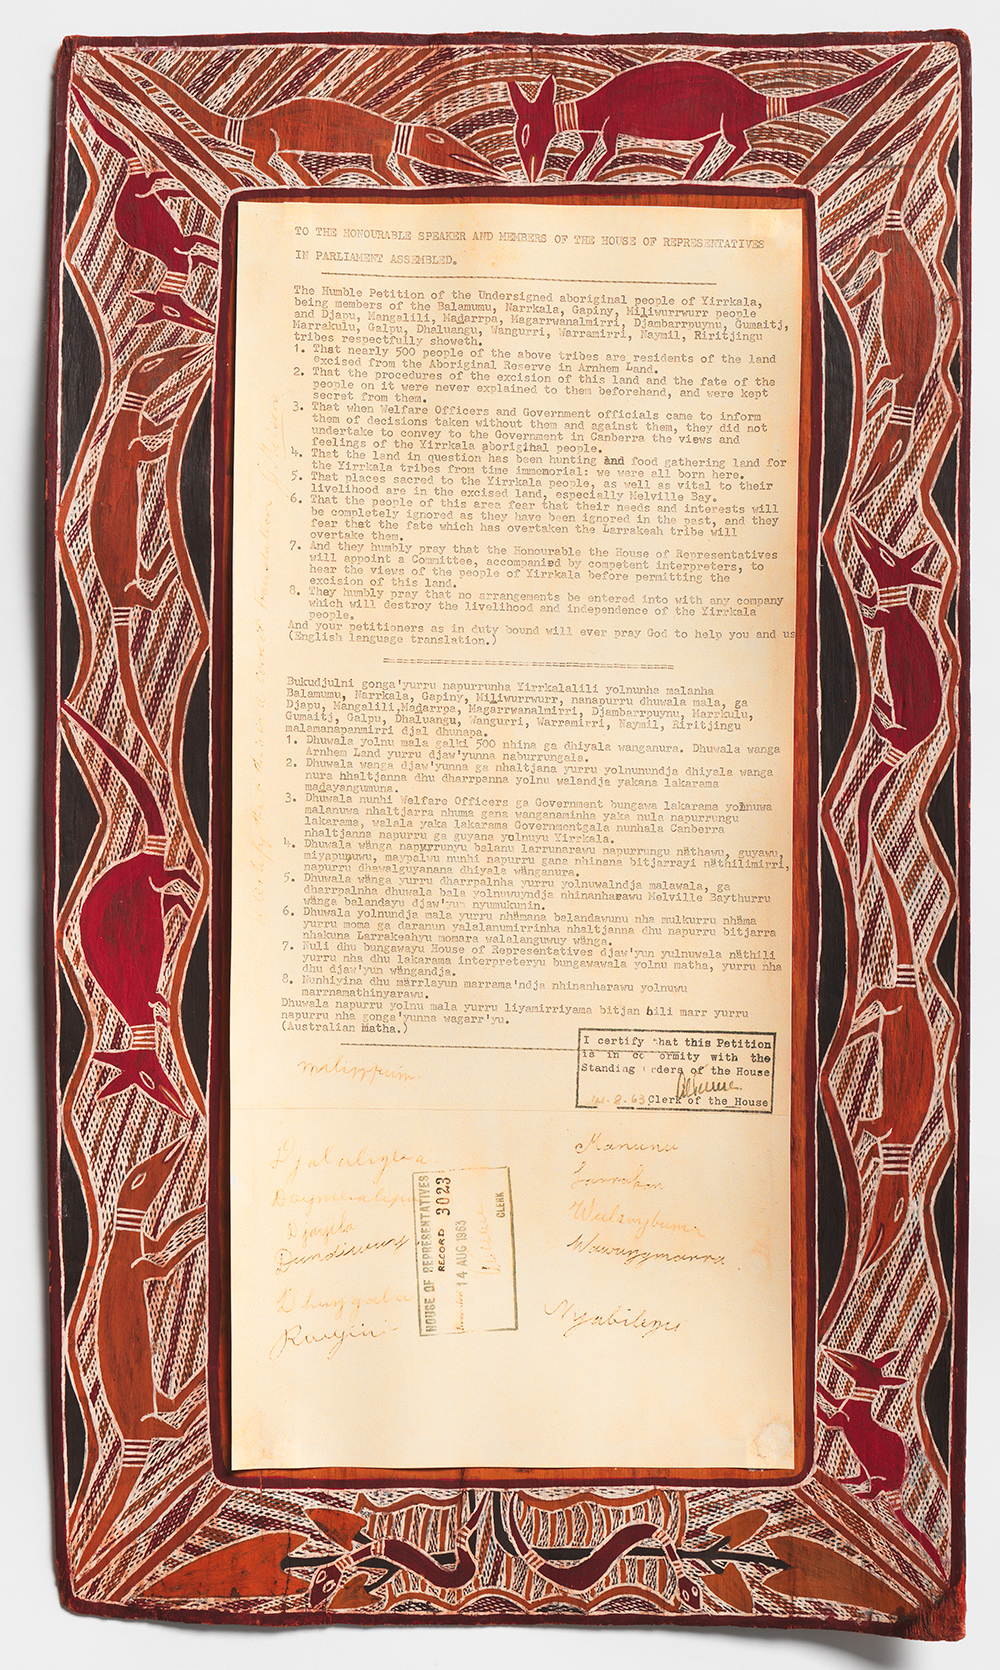 TO THE HONOURABLE SPEAKER AND MEMBERS OF THE HOUSE OF REPRESENTATIVES
IN PARLIAMENT ASSEMBLED.
The Humble Petition of the Undersigned aboriginal people of Yirrkala,
being members of the Balamumu, Narrkala, Gapiny, Miliwurrwurr people
and Djapu, Mangalili, Madarrpa, Magarrwanalmirri, Djambarrpuynu, Gumaitj,
Marrakulu, Galpu, Dhaluangu, Wangurri, Warramirri, Naymil, Riritjingu
tribes respectfully showeth.
1. That nearly 500 people of the above tribes are residents of the land
excised from the Aboriginal Reserve in Arnhem Land.
2. That the procedures of the excision of this land and the fate of the
people on it were never explained to them beforehand, and were kept
secret from them.
3. That when Welfare Officers and Government officials came to inform
them of decisions taken without them and against them, they did not
undertake to convey to the Government in Canberra the views and
feelings of the Yirrkala aboriginal people.
4. That the land in question has been hunting and food gathering land for
the Yirrkala tribes from time immemorial: we were all born here.
5. That places sacred to the Yirrkala people, as well as vital to their
livelihood are in the excised land, especially Melville Bay.
6. That the people of this area fear that their needs and interests will
be completely ignored as they have been ignored in the past, and they
fear that the fate which has overtaken the Larrakeah tribe will
overtake them.
7. And they humbly pray that the Honourable the House of Representatives
will appoint a Committee, accompanied by competent interpreters, to
hear the views of the people of Yirrkala before permitting the
excision of this land.
8. They humbly pray that no arrangements be entered into with any company
which will destroy the livelihood and independence of the Yirrkala
people.
And your petitioners as in duty bound will ever pray God to help you and us
(English language translation.)
Bukudjulni gonga'yurru napurrunha Yirrkalalili yolnunha malanha
Balamumu, Narrkala, Gapiny, Miliwurrwurr, nanapurru dhuwala mala, ga
Djapu, Mangalili, Madarrpa, Magarrwanalmirri, Djambarrpuynu, Marrkulu,
Gumaitj, Galpu, Dhaluangu, Wangurri, Warramirri, Naymil, Riritjingu
malamanapanmirri djal dhunapa.
1. Dhuwala yolnu mala galki 500 nhina ga dhiyala wanganura. Dhuwala wanga
Arnhem Land yurru djaw'yunna naburrungala.
2. Dhuwala wanga djaw'yunna ga nhaltjana yurru yolnunundja dhiyala wanga
nura nhaltjanna dhu dharrpanna yolnu walandja yakana lakarama
madayangumuna.
3. Dhuwala nunhi Welfare Officers ga Government bungawa lakarama yolnuwa
malanuwa nhaltjarra nhuma gana wanganaminha yaka nula napurrungu
lakarama, walala yaka lakarama Governmentgala nunhala Canberra
nhaltjanna napurru ga guyana yolnuyu Yirrkala.
4. Dhuwala wänga napurrunyu balanu larrunarawu napurrungu näthawu, guyawu,
miyapunuwu, maypalwu nunhi napurru gana nhinana bitjarrayi näthilimirri,
napurru dhawalguyanana dhiyala wänganura.
5. Dhuwala wänga yurru dharrpalnha yurru yolnuwalndja malawala, ga
dharrpalnha dhuwala bala yolnuwuyndja nhinanharawu Melville Baythurru
wänga balandayu djaw'yun nyumukunin.
6. Dhuwala yolnundja mala yurru nhämana balandawunu nha mulkurru nhäma
yurru moma ga daranun yalalanumirrinha nhaltjanna dhu napurru bitjarra
nhakuna Larrakeahyu momara walalanguwuy wänga.
7. Nuli dhu bungawayu House of Representatives djaw'yun yulnuwala näthili
yurru nha dhu lakarama interpreteryu bungawawala yolnu matha, yurru nha
dhu djaw'yun wängandja.
8. Nunhiyina dhu märrlayun marrama'ndja nhinanharawu yolnuwu
marrnamathinyarawu.
Dhuwala napurru yolnu mala yurru liyamirriyama bitjan bili marr yurru
napurru nha gonga'yunna wagarr'yu.
(Australian matha.)
I certify that this Petition
is in conformity with the
Standing Orders of the House
14.8.63 Clerk of the House
Milirrpum.
Djalalingba
Manunu
Larrakan
Djayila
Wulanybum
Dundiwuy
Wawunymarra
Dhuygala
Raiyin
Nyabilingu
HOUSE OF REPRESENTATIVES
RECORD 3023
14 AUG 1963
CLERK